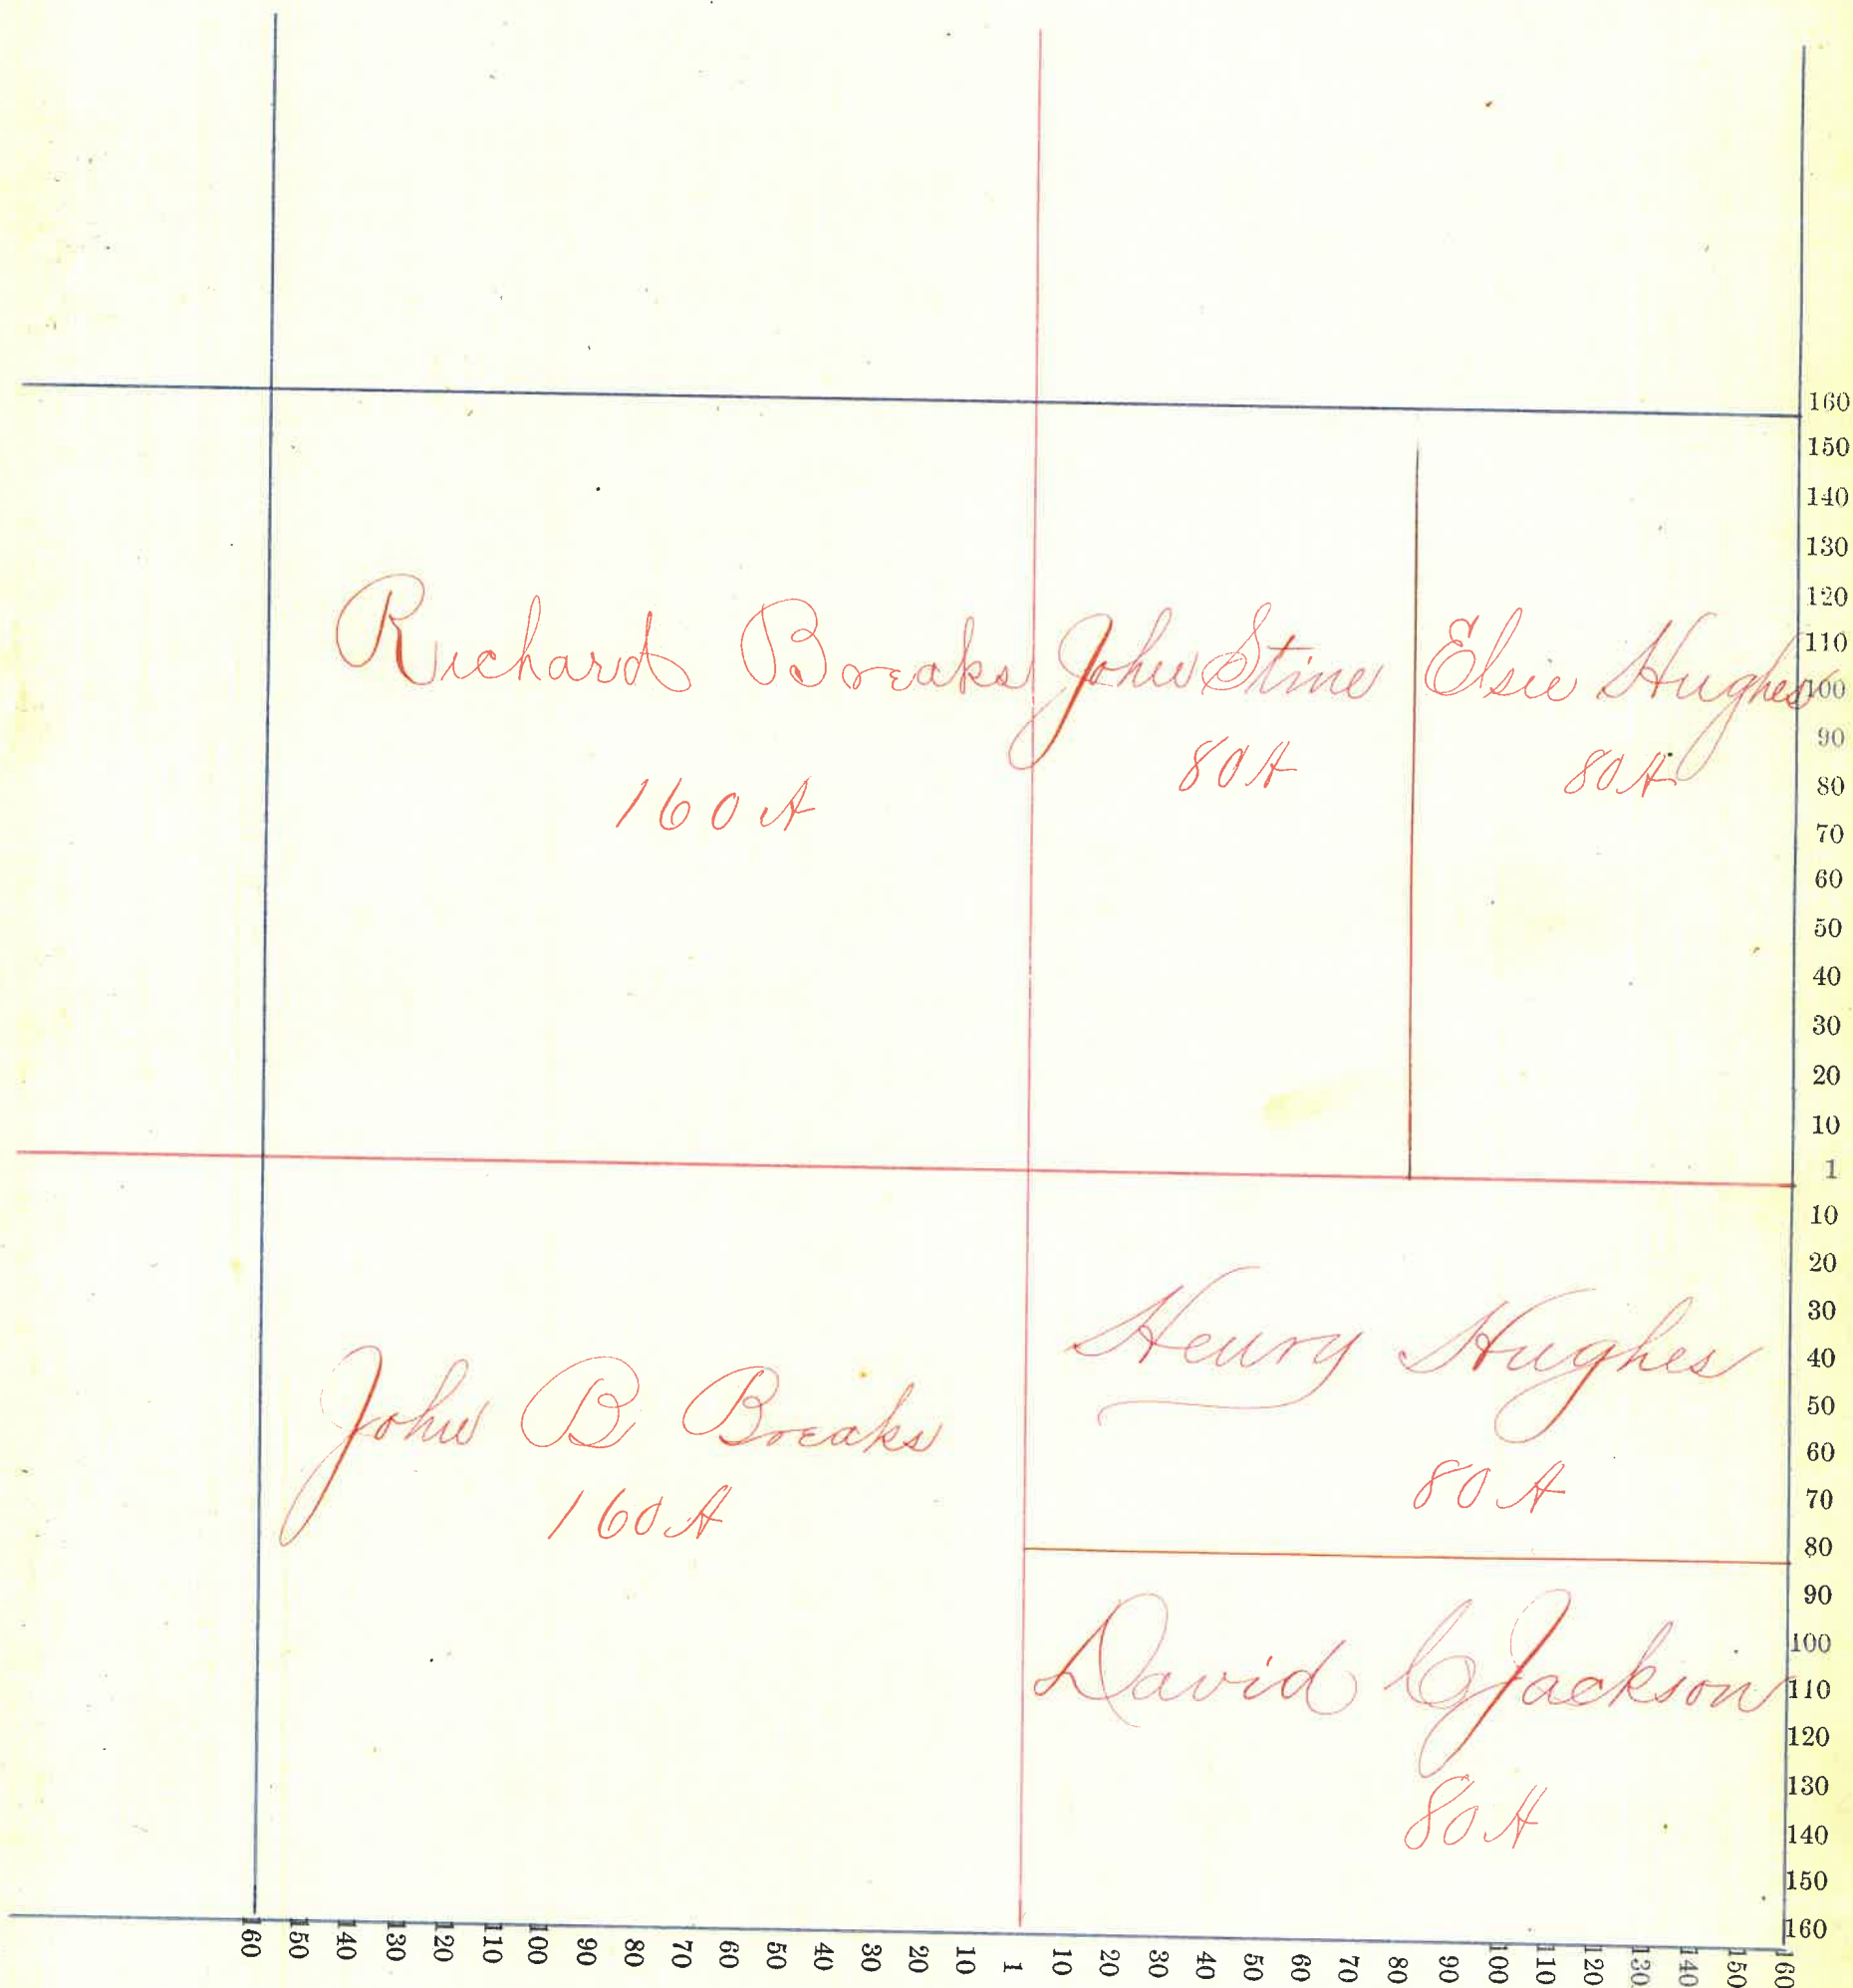 Richard Breaks
160 A
John Stine
80 A
Elsie Hughes
80 A
John B Breaks
160 A
Henry Hughes
80 A
David C Jackson
80 A
160
150
140
130
120
110
100
90
80
70
60
50
40
30
20
10
1
10
20
30
40
50
60
70
80
90
100
110
120
130
140
150
160
160 150 140 130 120 110 100 90 80 70 60 50 40 30 20 10 1 10 20 30 40 50 60 70 80 90 100 110 120 130 140 150 160